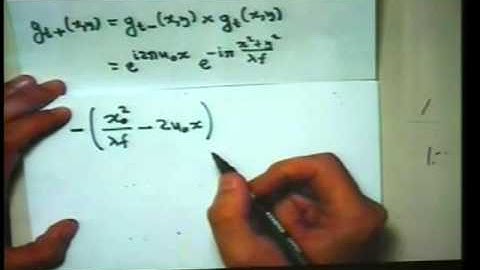 g_{t+}(x,y) = g_{t-}(x,y) × g_t(x,y)
= e^{i2πu_0x} e^{-iπ\frac{x^2+y^2}{λf}}
-(\frac{x_0^2}{λf} - 2u_0x)